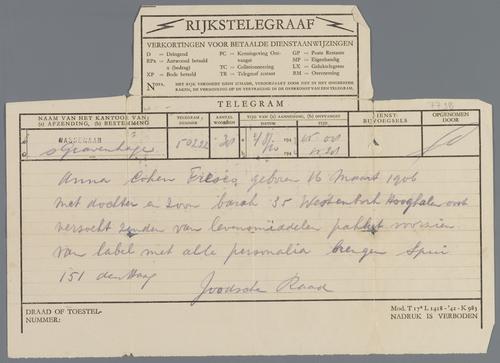 RIJKSTELEGRAAF
VERKORTINGEN VOOR BETAALDE DIENSTAANWIJZINGEN
D — Dringend
RPx — Antwoord betaald
x (bedrag)
XP — Bode betaald
PC — Kennisgeving Ontvangst
TC — Collationneering
TR — Telegraaf restant
GP — Poste Restante
MP — Eigenhandig
LX — Gelukstelegram
RM — Overneming
TELEGRAM
7798
NAAM VAN HET KANTOOR VAN
(a) AFZENDING, (b) BESTEMMING
TELEGRAM-
NUMMER
AANTAL
WOORDEN
TIJD VAN (a) AANBIEDING, (b) ONTVANGST
DATUM
TIJD
DIENST-
BIJVOEGSELS
OPGENOMEN
DOOR
WASSENAAR
sGravenhage
50292
30
194
194
Anna Cohen geboren 16 Maart 1906
met dochter en zoon barak 35 Westenbork Hooghalen oost
verzoekt zenden van levensmiddelen pakket voorzien
van label met alle personalia brengen Spui
151 den Haag
Joodsche Raad
DRAAD OF TOESTEL-
NUMMER:
Mod. T 17* L 1418 - '42 - K 983
NADRUK IS VERBODEN